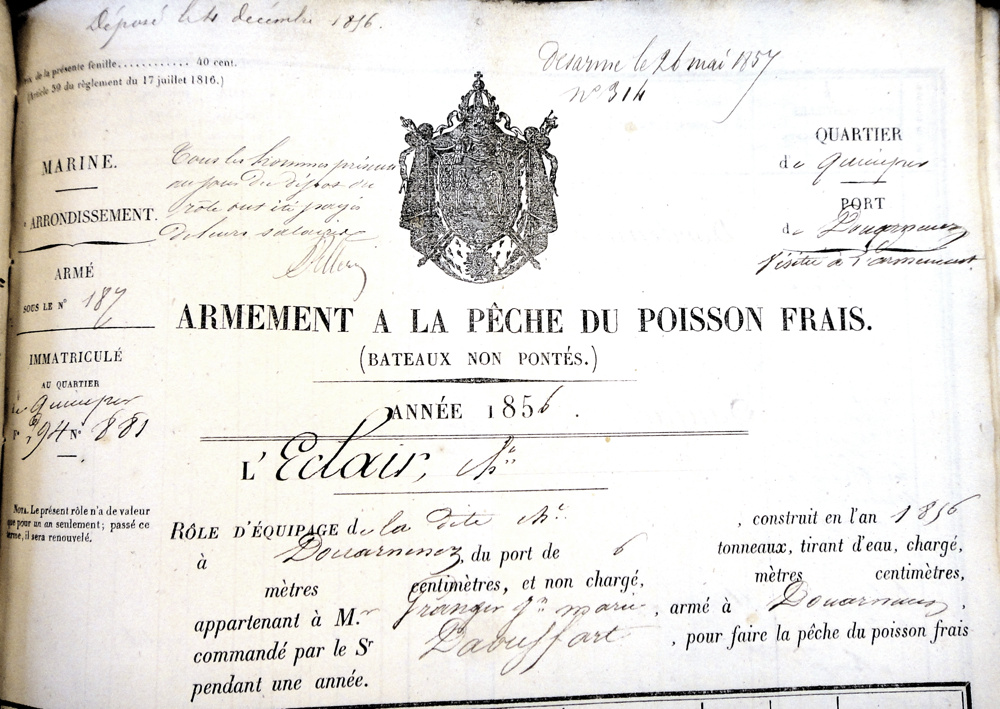 Déposé le 4 décembre 1856.
de la présente feuille............ 40 cent.
(Article 39 du règlement du 17 juillet 1816.)
Désarmé le 26 mai 1857
N° 314
MARINE.
ARRONDISSEMENT.
ARMÉ
SOUS LE N° 187
IMMATRICULÉ
AU QUARTIER
de Quimper
F° 94 N° 881
NOTA. Le présent rôle n'a de valeur
que pour un an seulement; passé ce
terme, il sera renouvelé.
Tous les hommes présens
au jour du dépôt du
rôle ont été payés
de leurs salaires
QUARTIER
de Quimper
PORT
de Douarnenez
Visitée à l'armement.
ARMEMENT A LA PÊCHE DU POISSON FRAIS.
(BATEAUX NON PONTÉS.)
ANNÉE 1856.
L'Eclair, Ch.
RÔLE D'ÉQUIPAGE de la dite Ch. , construit en l'an 1856
à Douarnenez, du port de 6 tonneaux, tirant d'eau, chargé,
mètres centimètres, et non chargé, mètres centimètres,
appartenant à M.r Granger Jn marie, armé à Douarnenez,
commandé par le Sr , pour faire la pêche du poisson frais
pendant une année.